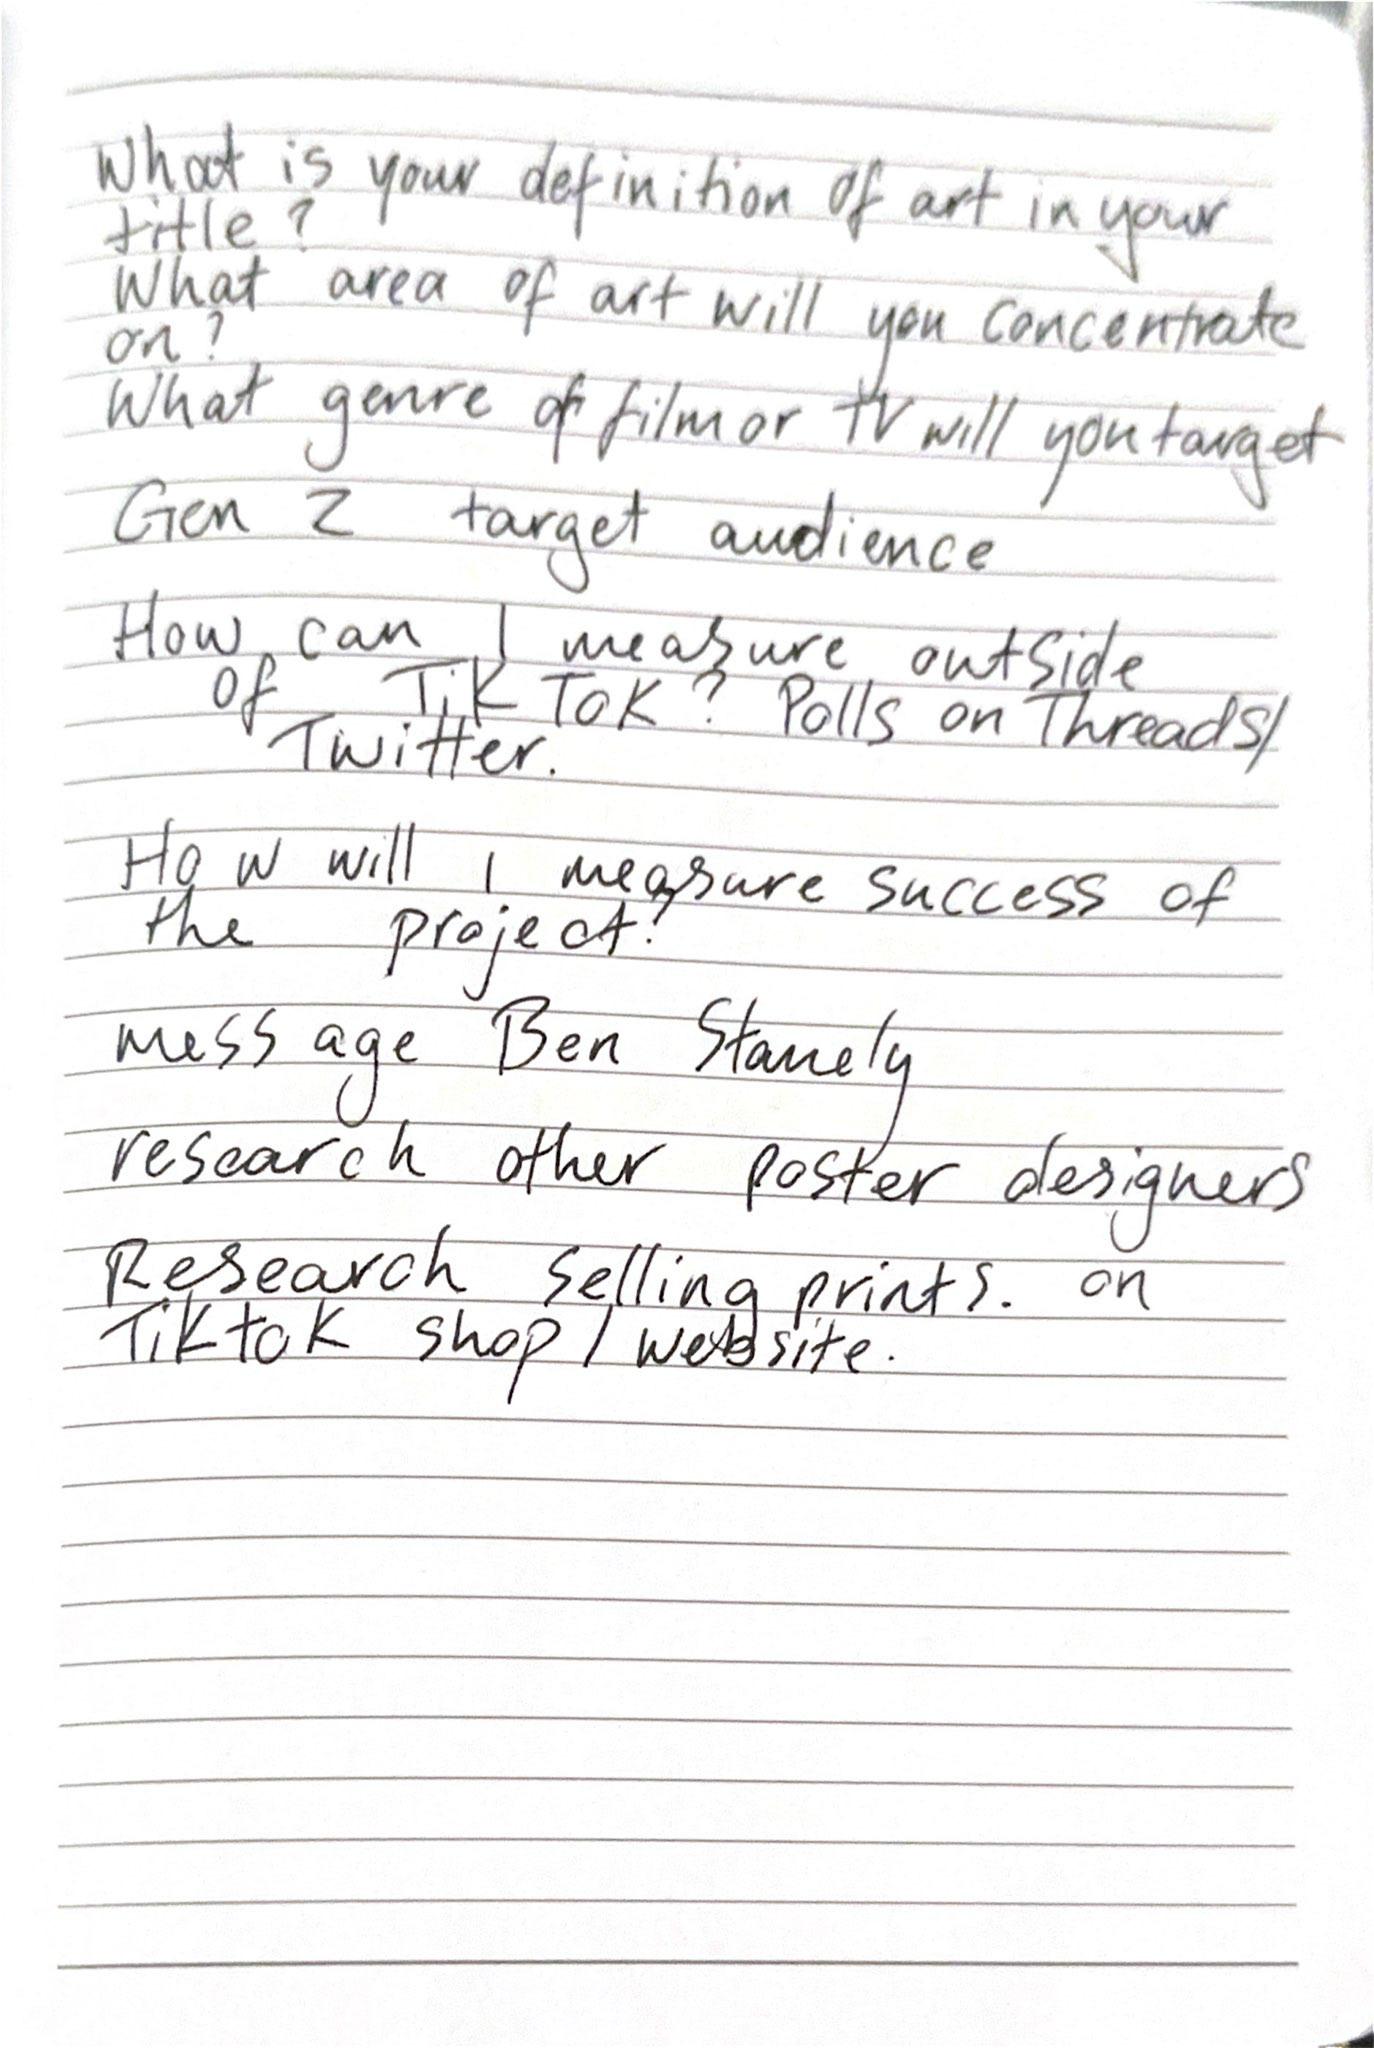 What is your definition of art in your
title?
What area of art will you concentrate
on?
What genre of film or TV will you target
Gen Z target audience
How can I measure outside
of TikTok? Polls on Threads/
Twitter.
How will I measure success of
the project?
message Ben Stanely
research other poster designers
Research selling prints. on
Tiktok shop / website.